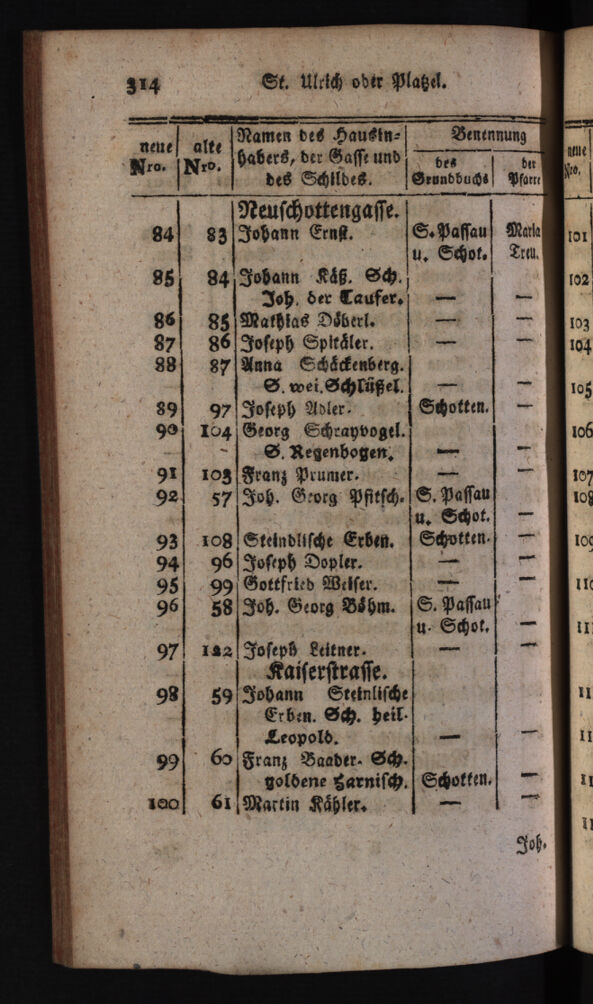 314 St. Ulrich oder Platzel.
neue Nro. alte Nro. Namen des Hausin= Benennung
habers, der Gasse und des der
des Schildes. Grundbuchs Pfarre
Neuschottengasse.
84 83 Johann Ernst. S. Passau Maria
u. Schot. Treu.
85 84 Johann Käß. Sch.
Joh. der Taufer. — —
86 85 Mathias Döberl. — —
87 86 Joseph Spitäler. — —
88 87 Anna Schäckenberg.
S. wei. Schlüßel. — —
89 97 Joseph Adler. Schotten. —
90 104 Georg Schrayvogel.
S. Regenbogen. — —
91 103 Franz Prumer. — —
92 57 Joh. Georg Pfitsch. S. Passau
u. Schot. —
93 108 Steindlische Erben. Schotten. —
94 96 Joseph Dopler. — —
95 99 Gottfried Weiser. — —
96 58 Joh. Georg Böhm. S. Passau
u. Schot. —
97 122 Joseph Leitner. — —
Kaiserstrasse.
98 59 Johann Steinlische
Erben. Sch. heil.
Leopold. — —
99 60 Franz Baader. Sch.
goldene Harnisch. Schotten. —
100 61 Martin Kähler. — —
Joh.
neue
Nro.
101
102
103
104
105
106
107